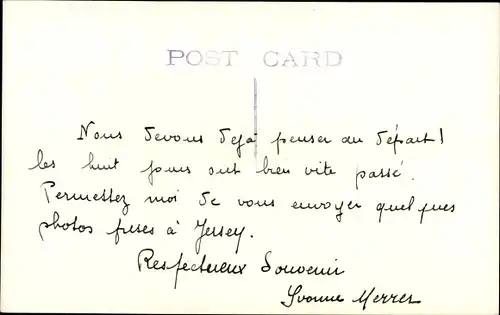 POST CARD
Nous devons déjà penser au départ!
les huit jours ont bien vite passé.
Permettez moi de vous envoyer quelques
photos prises à Jersey.
Respectueux Souvenir
Yvonne Merret